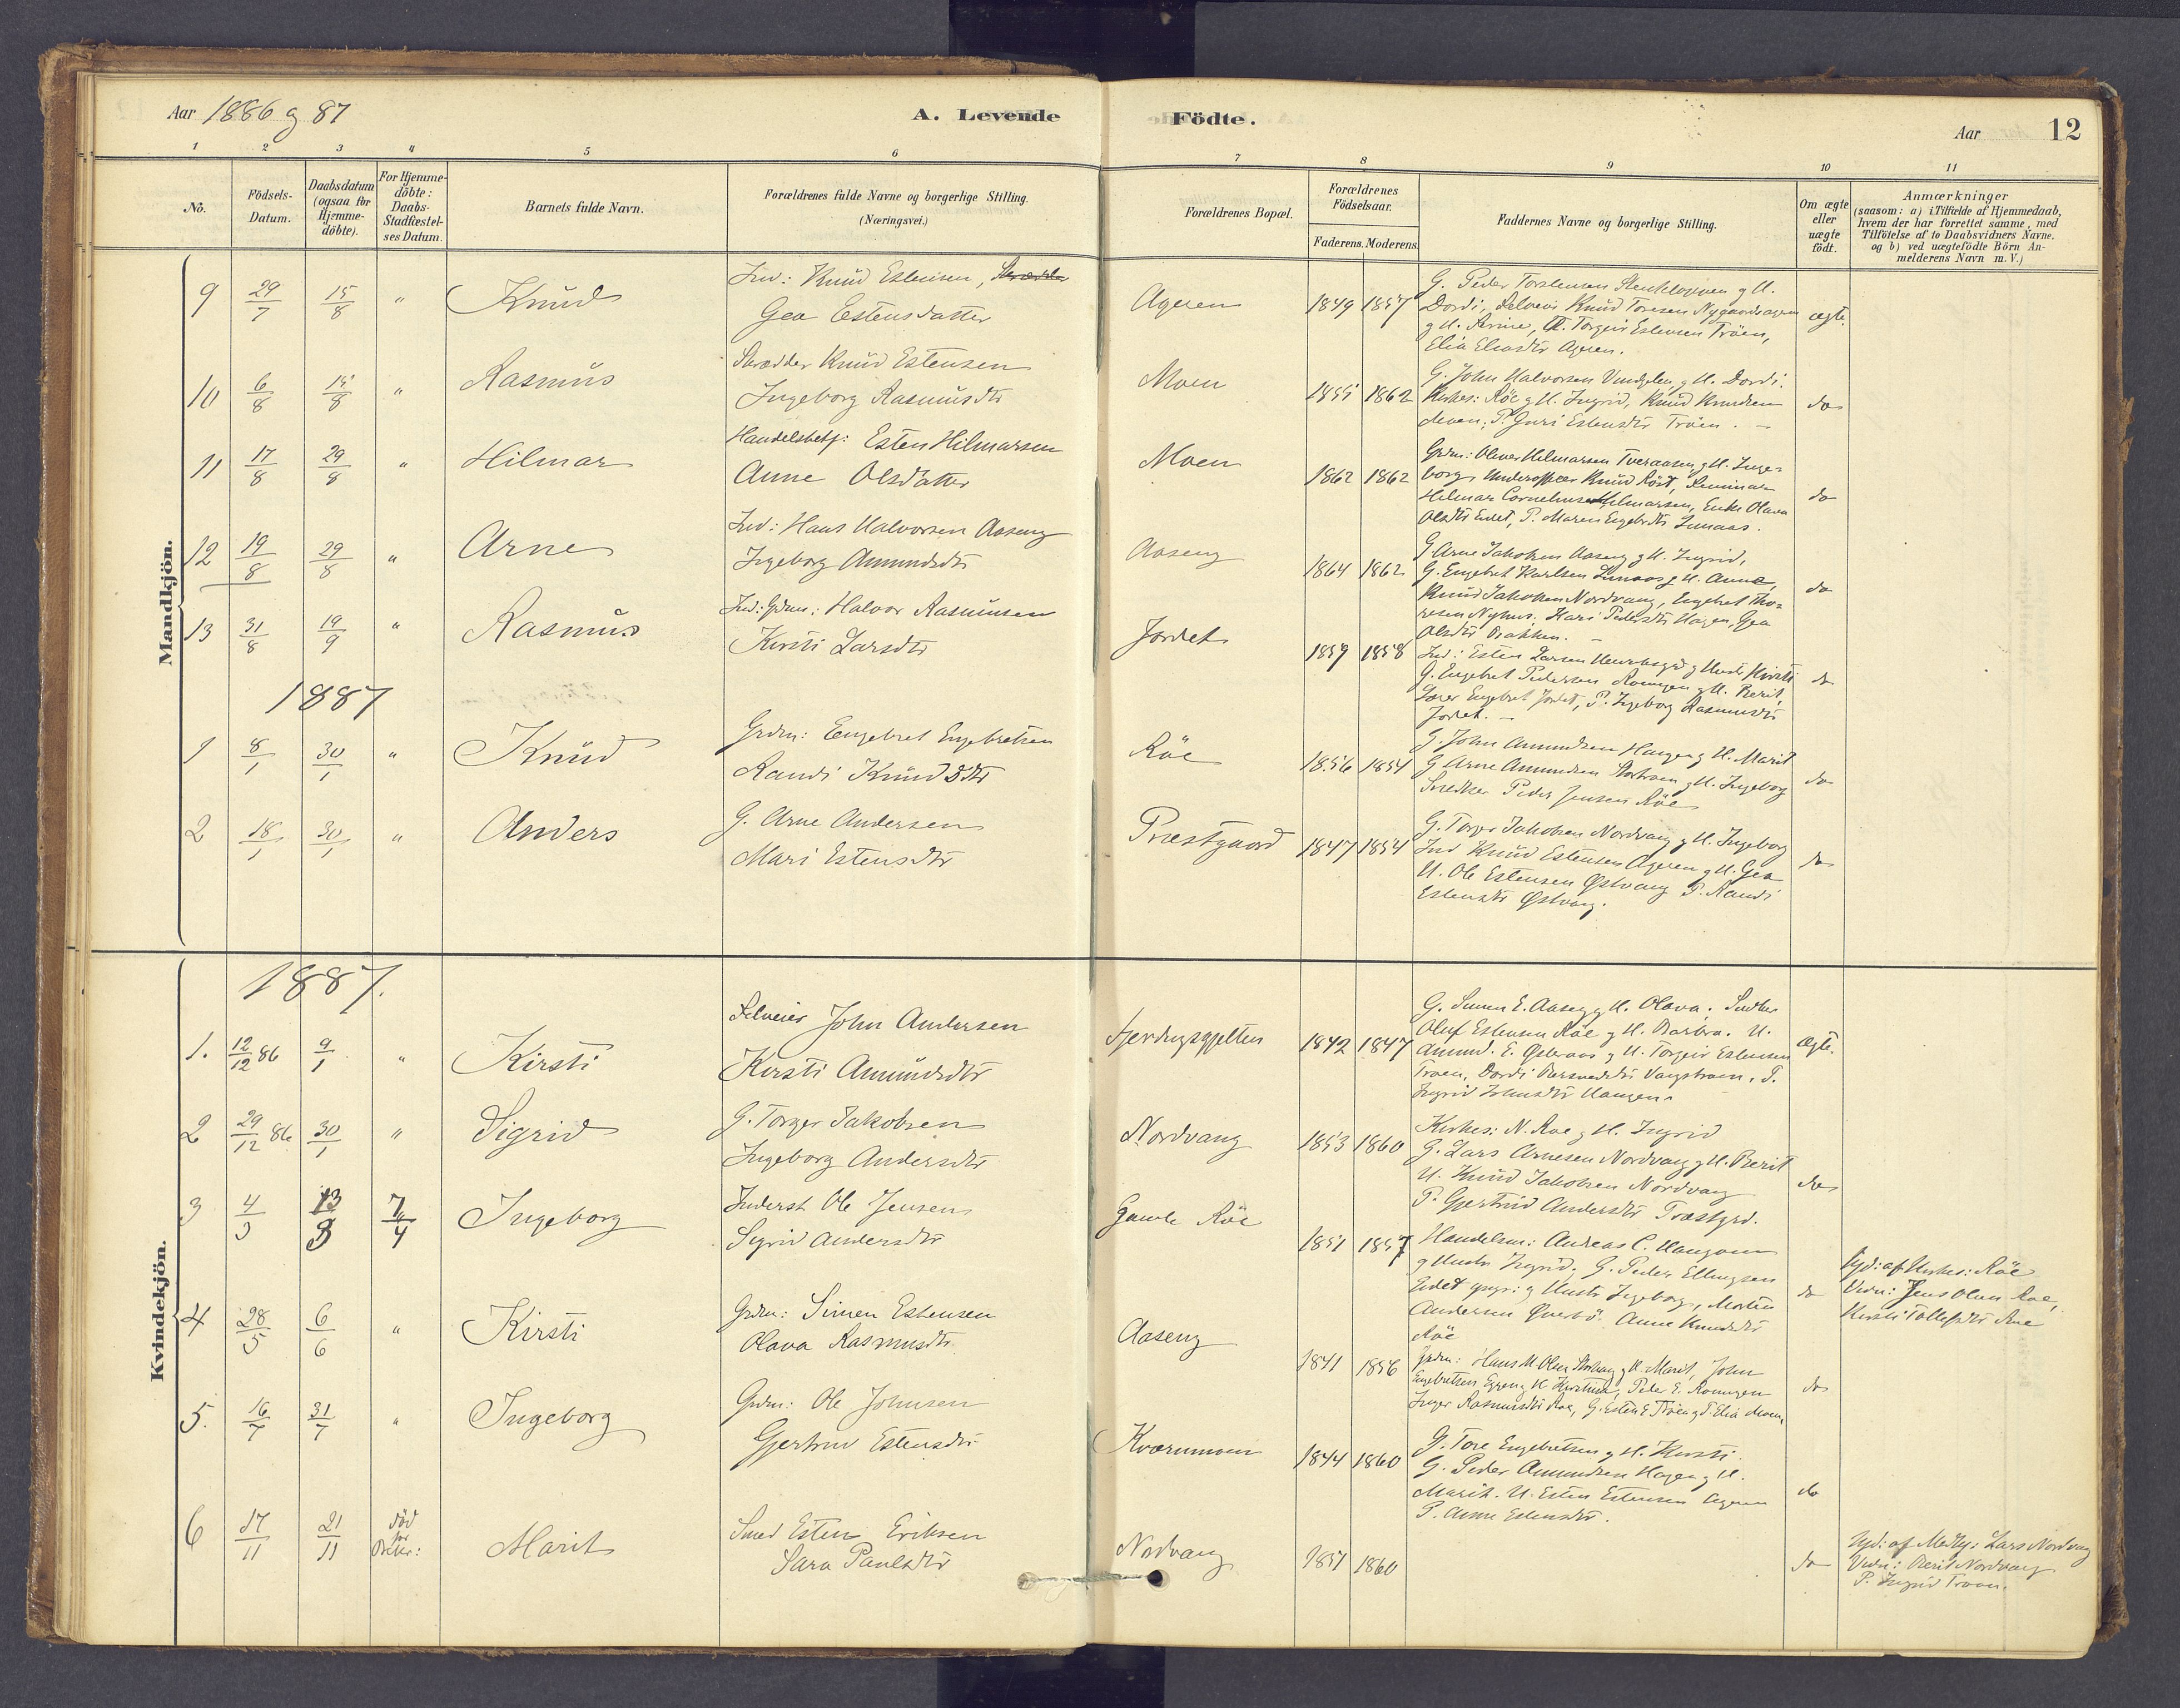 Aar 1886 og 87
A. Levende
Födte.
Aar
12
1 2 3 4 5 6 7 8 9 10 11
No.
Födsels-
Datum.
Daabsdatum
(ogsaa for
Hjemme-
döbte).
For Hjemme-
döbte:
Daabs-
Stadfæstel-
ses Datum.
Barnets fulde Navn.
Forældrenes fulde Navne og borgerlige Stilling.
(Næringsvei.)
Forældrenes Bopæl.
Forældrenes
Födselsaar.
Faderens. Moderens.
Faddernes Navne og borgerlige Stilling.
Om ægte
eller
uægte
födt.
Anmærkninger
(saasom: a) i Tilfælde af Hjemmedaab,
hvem der har forrettet samme, med
Tilföielse af to Daabsvidners Navne.
og b) ved uægtefödte Börn An-
melderens Navn m. V.)
Mandkjön.
9 29/7 15/8 " Knud
Ind: Knud Estensen,
Gea Estensdatter
Ageren 1849 1857
G. Peder Torstensen
Dordi, Selveier Knud Toresen
Torgeir Estensen Tröen,
Elia
ægte.
10 6/8 15/8 " Rasmus
Skrædder Knud Estensen
Ingeborg Rasmusdtr
Moen 1855 1862
G. John Halvorsen Vindgelen g H. Dordi.
Kirkes: Röe g H. Ingrid, Knud Knudsen
Moen, P. Guri Estensdtr Tröen. –
do
11 17/8 29/8 " Hilmar
Handelsbetj: Esten Hilmarsen
Anne Olsdatter
Moen 1862 1862
Grdm: Oliver Hilmarsen Tveraasen g H. Inge-
borg, Underofficer Knud Röst,
Hilmar Cornelius Hilmarsen, Enke Olava
Olsdtr Eidet, P. Maren Engebrdtr Lunaas.
do
12 19/8 29/8 " Arne
Ind: Hans Halvorsen Aaseng
Ingeborg Amundsdtr
Aaseng 1864 1862
G Arne Jakobsen Aaseng g H. Ingrid,
G. Engebret Karlsen Lunaas g H. Anne,
Knud Jakobsen Nordvang, Engebret Tho-
resen Nyhus, Kari Pedersdtr Hagen, Gea
Olsdtr Bakken. –
do
13 31/8 19/9 " Rasmus
Ind: Grdm: Halvor Rasmusen
Kirsti Larsdtr
Jordet 1859 1858
Ind: Esten Larsen g Hustr Kirsti
G. Engebret Pedersen Romgen g H. Berit,
Lærer Engebret Jordet, P. Ingeborg Rasmusdtr
Jordet. –
do
1887
1 8/1 30/1 " Knud
Grdm: Engebret Engebretsen
Randi Knudsdtr
Röe 1856 1854
G. John Amundsen Haugen g H. Marit
G Arne Amundsen g H. Ingeborg
Snedker Peder Jensen Röe
do
2 18/1 30/1 " Anders
G. Arne Andersen
Mari Estensdtr
Præstgaard 1847 1854
G. Torger Jakobsen Nordvang g H. Ingeborg
Ind Knud Estensen Ageren g H. Gea
U. Ole Estensen Østvang P. Randi
Estensdtr Østvang.
do
Kvindekjön.
1887.
1. 12/12 86 9/1 " Kirsti
Selveier John Andersen
Kirsti Amundsdtr
1842 1847
G. Simen E. Aaseng g H. Olava, Snedker
Oluf Estensen Röe g H. Barbra. U.
Amund. E. g U. Torgeir Estensen
Troen, Dordi Vangstroen, P.
Ingrid Johnsdtr Haugen.
Ægte.
2 29/12 86 30/1 " Sigrid
G. Torger Jakobsen
Ingeborg Andersdtr
Nordvang 1853 1860
Kirkes: N. Roe g H. Ingrid
G. Lars Arnesen Nordvang g H. Berit
U. Knud Jakobsen Nordvang
P. Gjertrud Andersdtr Præstgrd.
do
3 4/3 13/3 7/4 Ingeborg
Inderst Ole Jensen
Sigrid Andersdtr
Gamle Röe 1851 1857
Handelsm: Andreas C. Haugom
g Hustr Ingrid. G. Peder Ellingsen
Eidet g Hustr Ingeborg, Morten
Andersen Anne Knudsdtr
Röe
do
Hjd: af Kirkes: Röe
Vidn: Jens Olsen Roe,
Kirsti Tollefsdtr Roe
4 28/5 6/6 " Kirsti
Grdm: Simen Estensen
Olava Rasmusdtr
Aaseng 1841 1856
Grdm: Hans M. Olsen g H. Marit, John
Engebretsen Eggen g H Kirstine, Peder E. Romgen
Inger Rasmusdtr Roe, G. Esten E Tröen g P. Elia Moen,
do
5. 16/7 31/7 " Ingeborg
Grdm: Ole Johnsen
Gjertrud Estensdtr
Kværnmoen 1844 1860
G. Tore Engebretsen g H. Kirsti.
G. Peder Amundsen Hagen g H.
Marit. U. Esten Estensen Ageren
P. Anne Estensdtr.
do
6 17/11 21/11 død før Bekr: Marit
Smed Esten Eriksen
Sara Paulsdtr
Nordvang 1851 1860
do
Hjd: af Medhj: Lars Nordvang
Vidn: Berit Nordvang
P. Ingrid Troen.